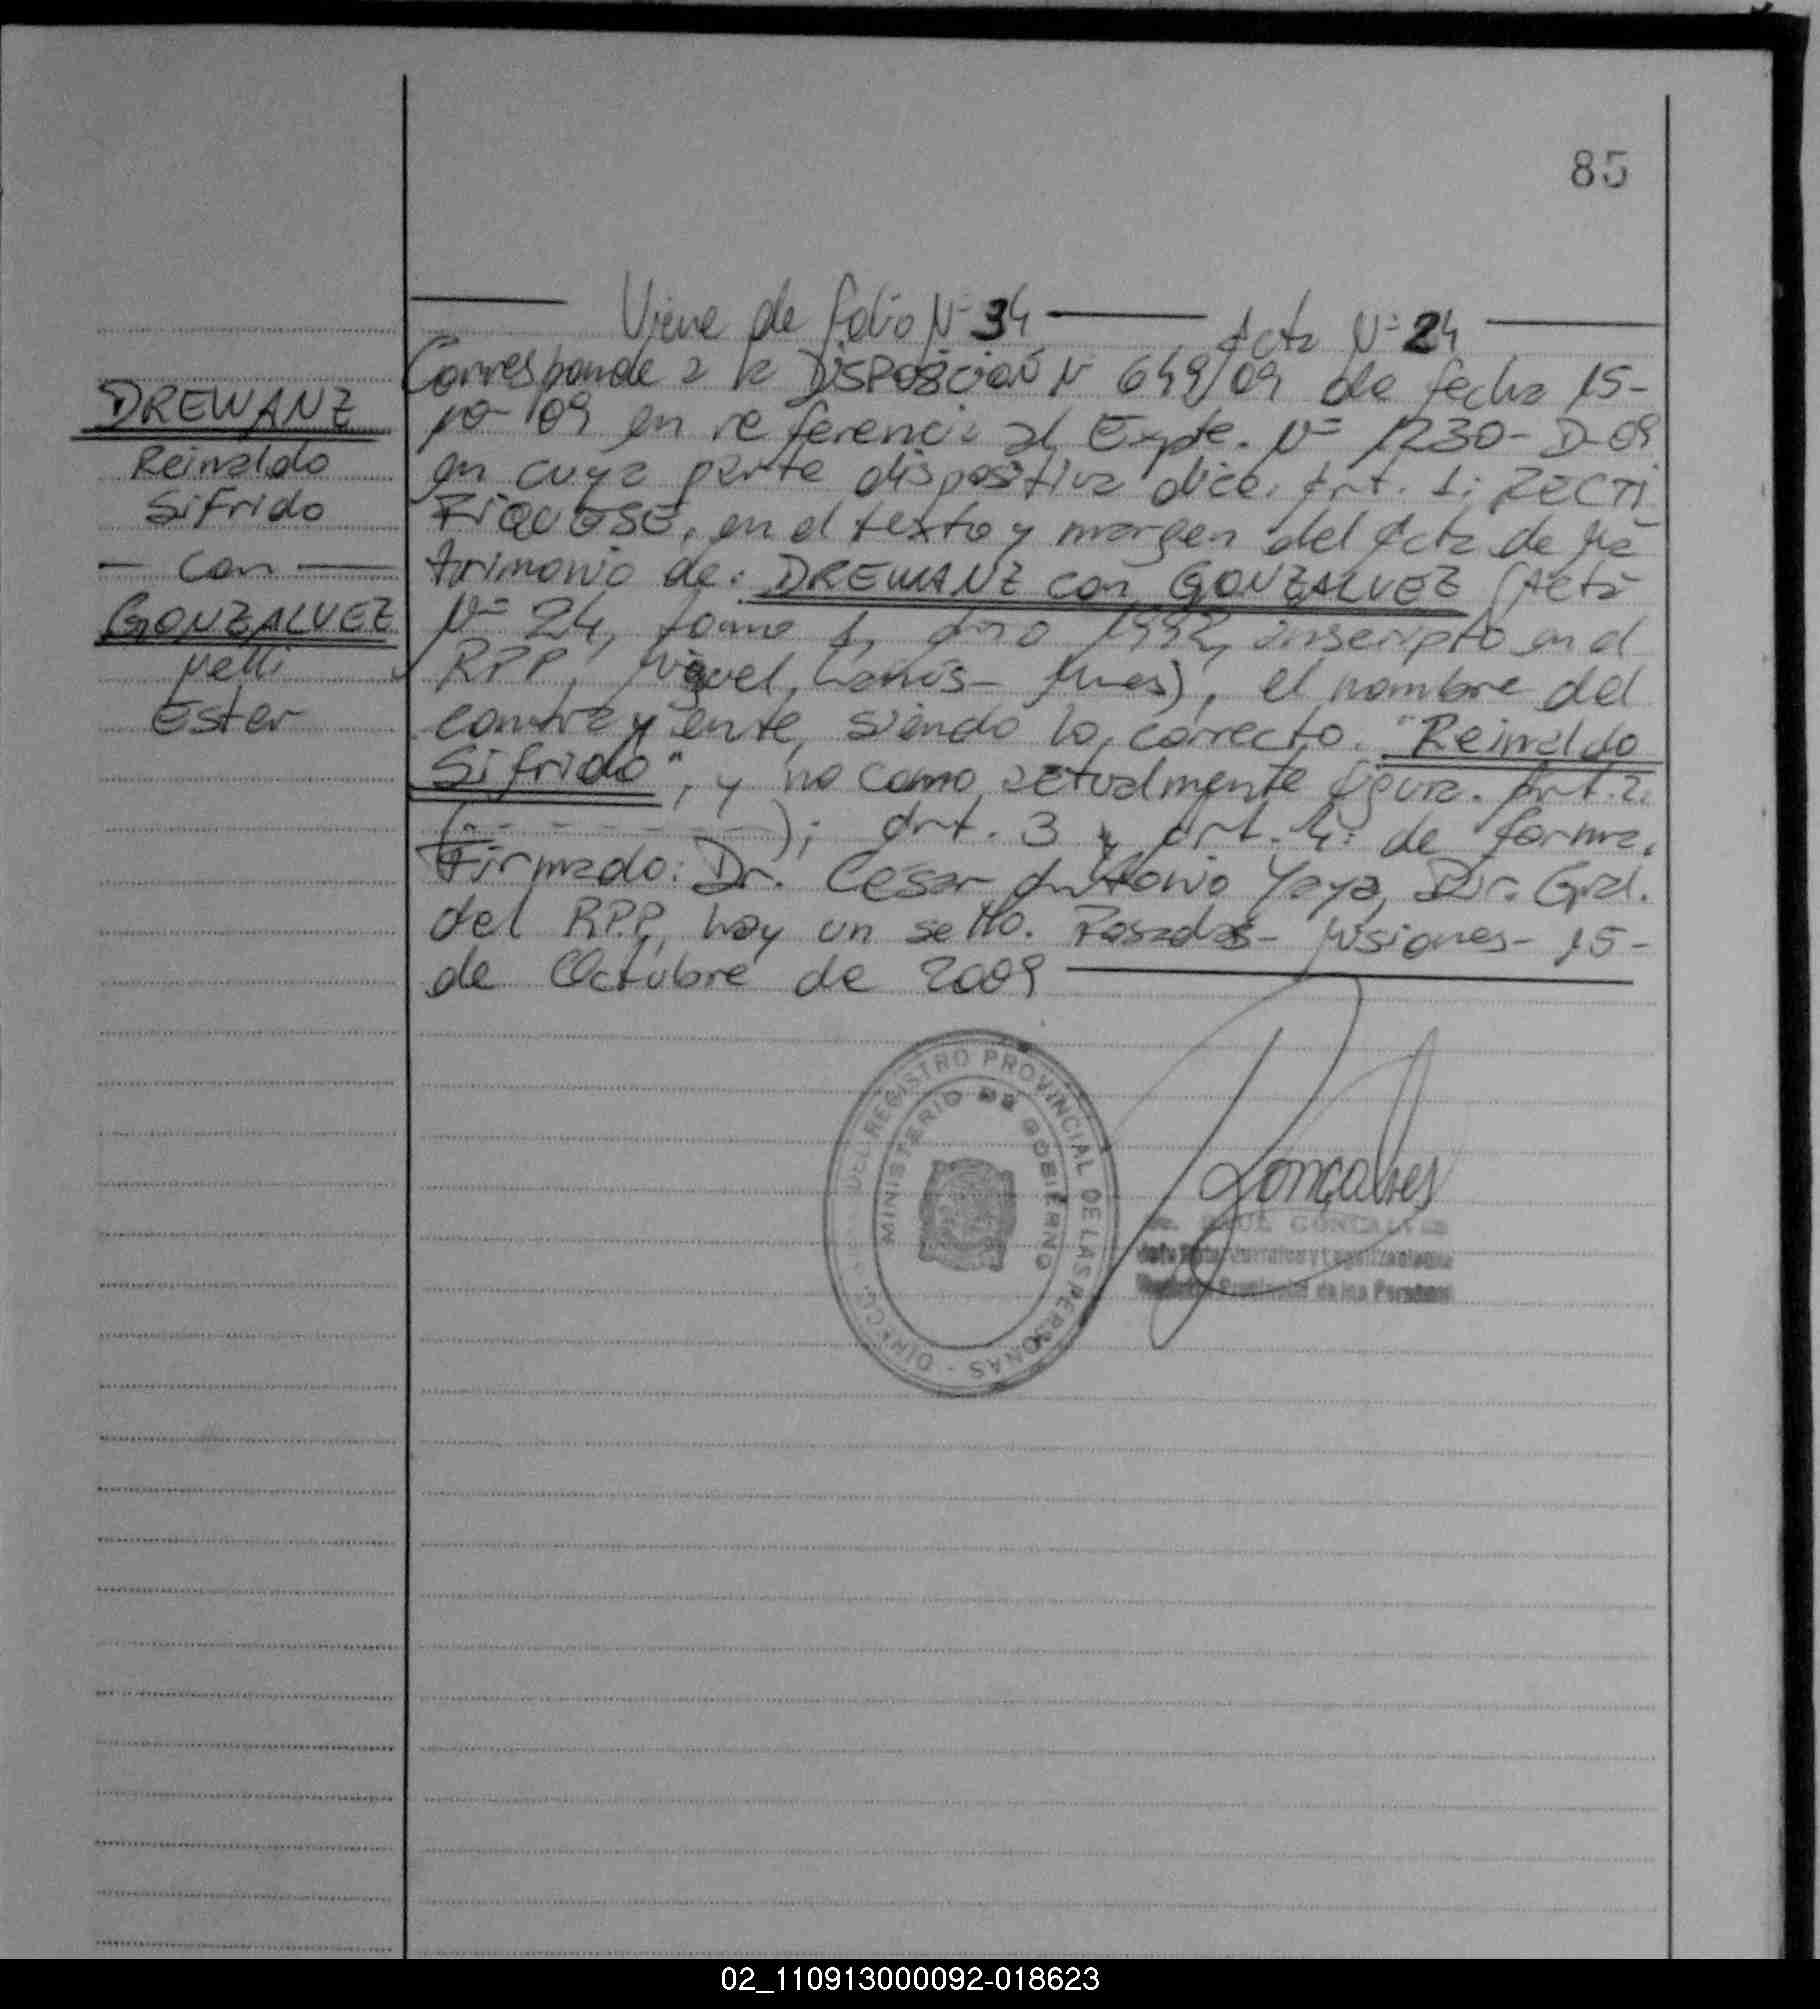 85
Viene de folio Nº 34 Acta Nº 24
Corresponde a la DISPOSICIÓN Nº 649/09 de fecha 15-
10-09 en referencia al Expte. Nº 1230-D-09
en cuya parte dispositiva dice: Art. 1: RECTI
FIQUESE, en el texto y margen del Acta de Ma
trimonio de: DREWANZ con GONZALVEZ (Acta
Nº 24, tomo 1, año 1992, inscripto en el
RPP, Mnes), el nombre del
contrayente, siendo lo correcto. "Reinaldo
Sifrido", y no como actualmente figura. Art. 2:
(- - - - - - -); Art. 3 y Art. 4: de forma.
Firmado: Dr. Cesar Antonio Yaya, Dir. Gral.
del RPP, hay un sello. Posadas- Misiones- 15-
de Octubre de 2009
DREWANZ
Reinaldo
Sifrido
- con -
GONZALVEZ
Nelli
Ester
REGISTRO PROVINCIAL DE LAS PERSONAS -
MINISTERIO DE GOBIERNO
Gonçalves
RAUL GONCALVES
Registro Provincial de las Personas
02_110913000092-018623